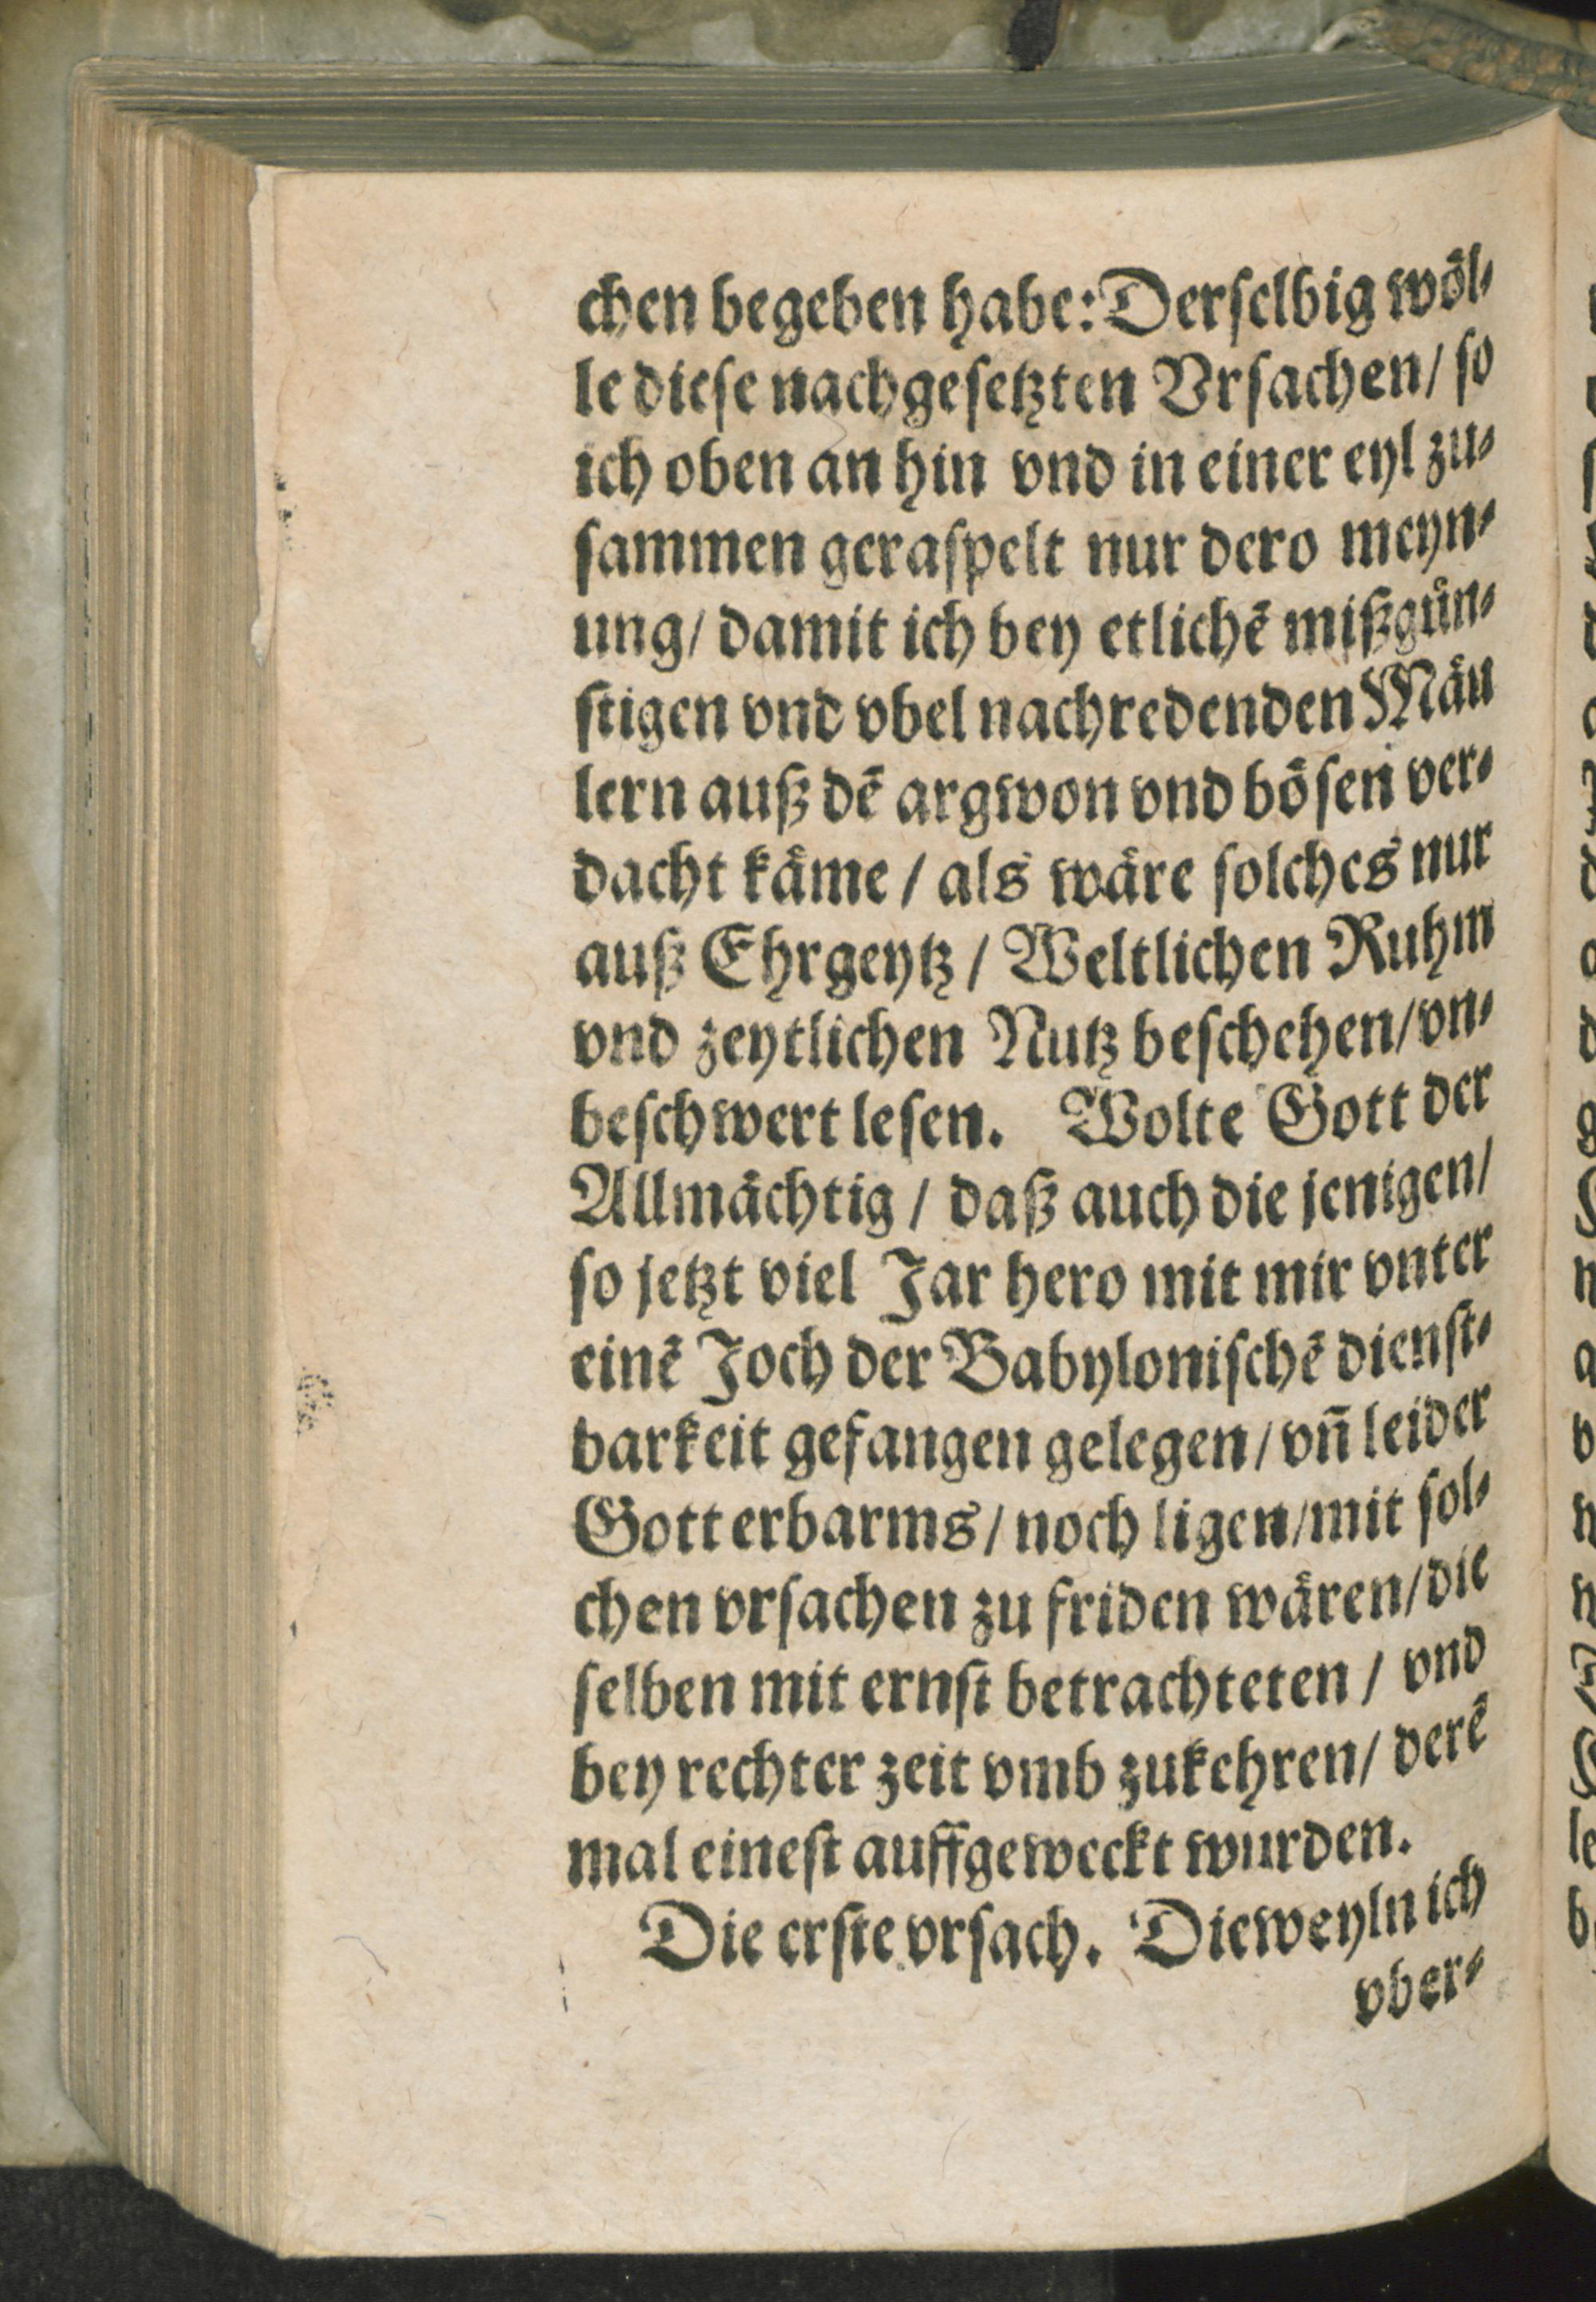 chen begeben habe: Derſelbig wöl⸗
le dieſe nachgeſetzten Vrſachen/ ſo
ich oben an hin vnd in einer eyl zu⸗
ſammen geraſpelt nur dero meyn⸗
ung/ damit ich bey etlichē mißgün⸗
ſtigen vnd vbel nachredenden Mäu
lern auß dē argwon vnd böſen ver⸗
dacht käme / als wäre ſolches nur
auß Ehrgeytz / Weltlichen Ruhm
vnd zeytlichen Nutz beſchehen/ vn⸗
beſchwert leſen. Wolte Gott der
Allmächtig / daß auch die jenigen/
ſo jetzt viel Jar hero mit mir vnter
einē Joch der Babyloniſchē dienſt⸗
barkeit gefangen gelegen/ vn̄ leider
Gott erbarms/ noch ligen/mit ſol⸗
chen vrſachen zu friden wären/die
ſelben mit ernſt betrachteten / vnd
bey rechter zeit vmb zukehren/ derē
mal eineſt auffgeweckt wurden.
Die erſte vrſach. Dieweyln ich
vber⸗